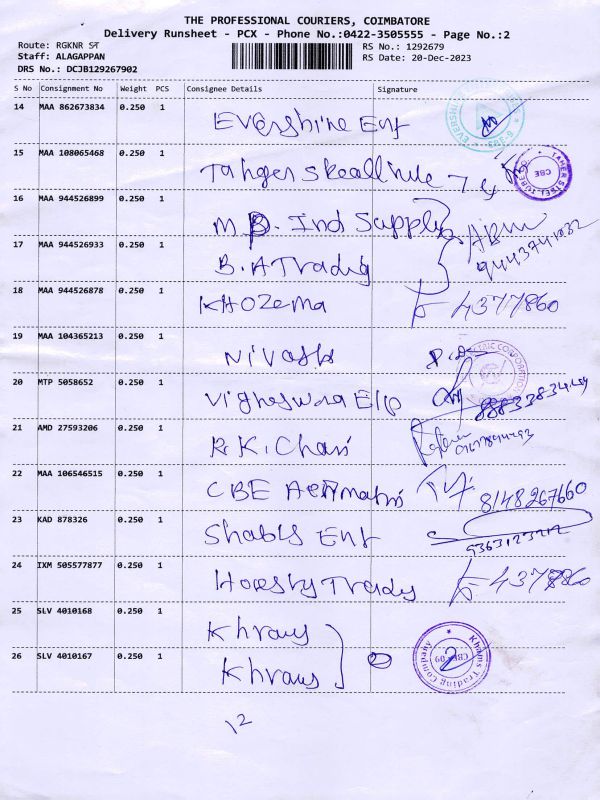 THE PROFESSIONAL COURIERS, COIMBATORE
Delivery Runsheet - PCX - Phone No.:0422-3505555 - Page No.:2
Route: RGKNR ST
RS No.: 1292679
Staff: ALAGAPPAN
RS Date: 20-Dec-2023
DRS No.: DCJB129267902
S No Consignment No Weight PCS Consignee Details Signature
14 MAA 862673834 0.250 1 Evershine Ent
15 MAA 108065468 0.250 1
TAHER STEEL TUBE CO. CBE
16 MAA 944526899 0.250 1 M.B. Ind Supply
17 MAA 944526933 0.250 1 B.A Tradig
18 MAA 944526878 0.250 1 KHOZEMA 4377860
19 MAA 104365213 0.250 1
20 MTP 5058652 0.250 1
21 AMD 27593206 0.250 1 R.K. Chari
22 MAA 106546515 0.250 1 CBE 8148267660
23 KAD 878326 0.250 1 Shabls Ent
24 IXM 505577877 0.250 1 4377860
25 SLV 4010168 0.250 1 Khraus
26 SLV 4010167 0.250 1 Khraus
Khams Trading Company
12